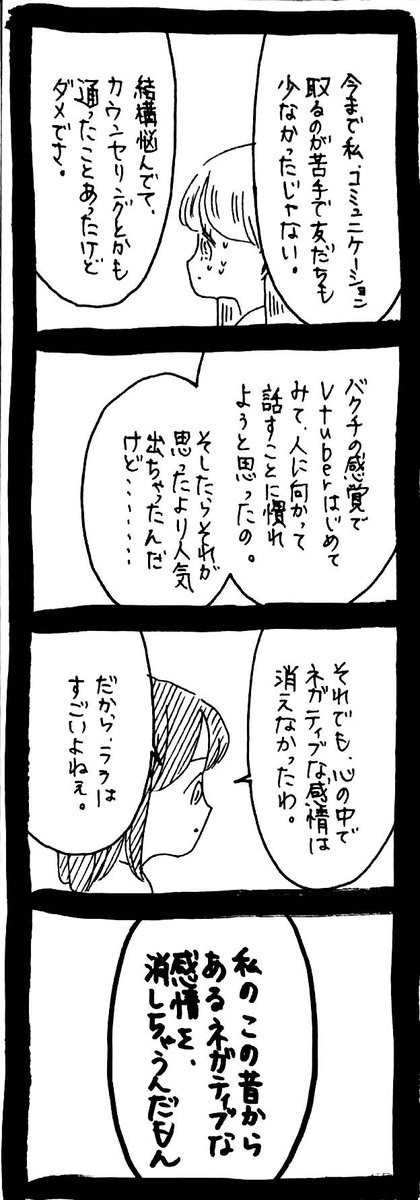 今まで私、コミュニケーション
取るのが苦手で友だちも
少なかったじゃない。
結構悩んでて、
カウンセリングとかも
通ったことあったけど
ダメでさ。
バクチの感覚で
Vtuberはじめて
みて、人に向かって
話すことに慣れ
ようと思ったの。
そしたらそれが
思ったより人気
出ちゃったんだ
けど………
それでも、心の中で
ネガティブな感情は
消えなかったわ。
だから、ララは
すごいよねぇ。
私のこの昔から
あるネガティブな
感情を、
消しちゃうんだもん